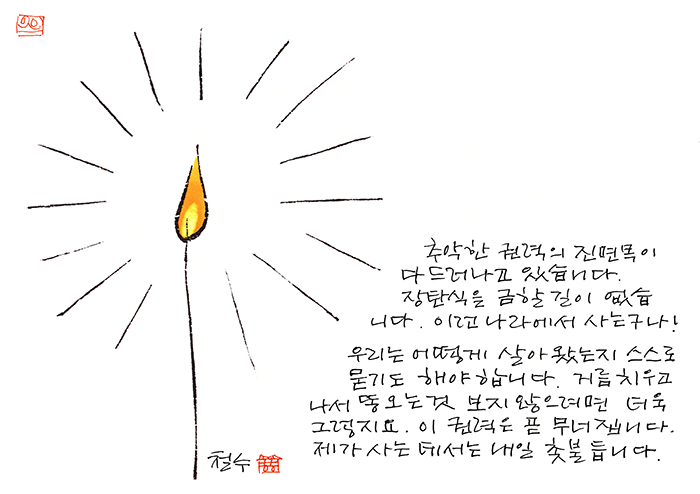 추악한 권력의 진면목이
다 드러나고 있습니다.
장탄식을 금할 길이 없습
니다. 이런 나라에서 사는구나!
우리는 어떻게 살아 왔는지 스스로
묻기도 해야 합니다. 거름 치우고
나서 똥 오는것 보지 않으려면 더욱
그렇지요. 이 권력은 곧 무너집니다.
제가 사는 데서는 내일 촛불 듭니다.
철수